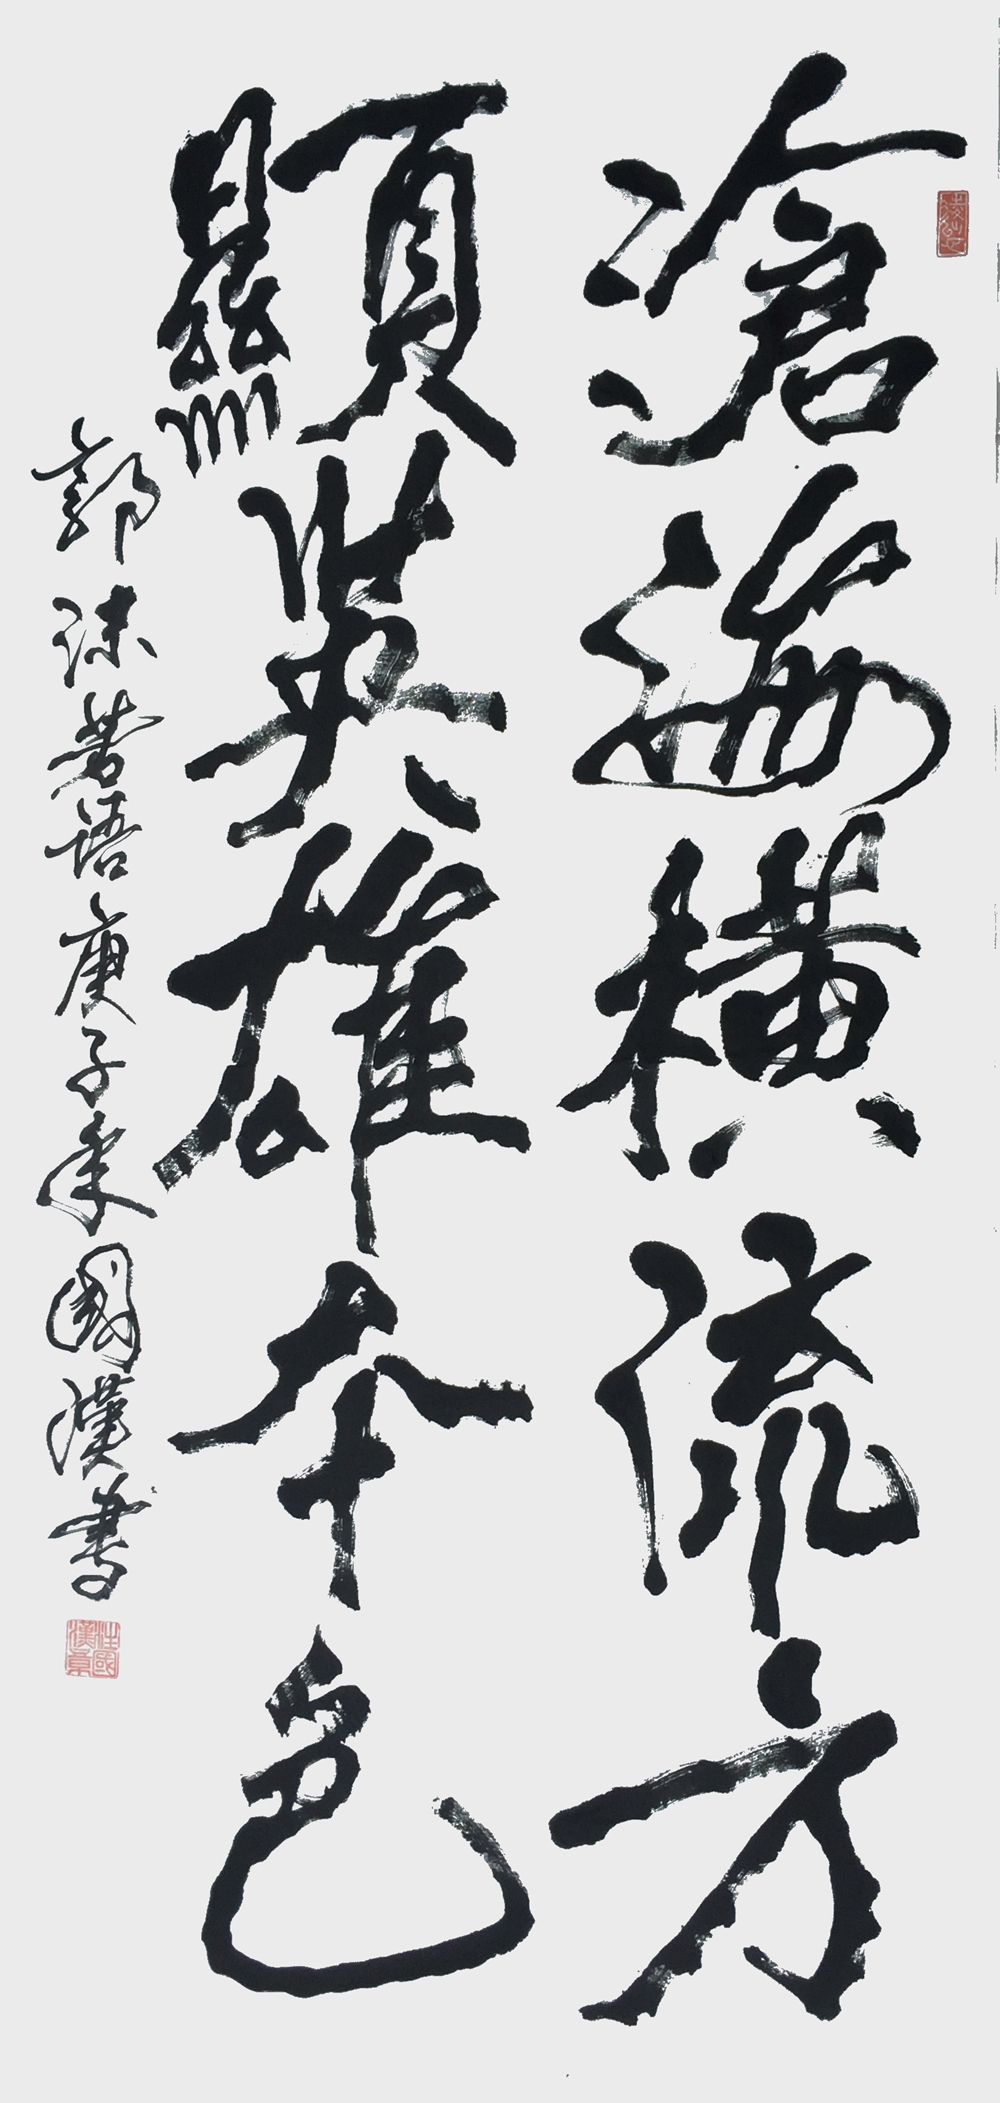 滄海橫流方
顯英雄本色
郭沫若語庚子年國漢書
汪國漢章